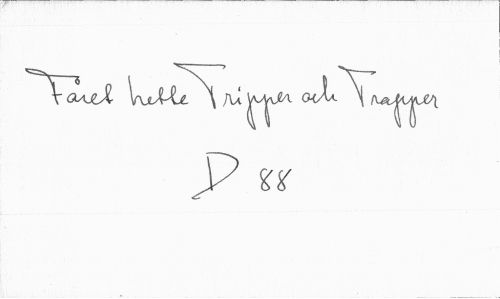 Fåret hette Tripper och Trapper
D 88